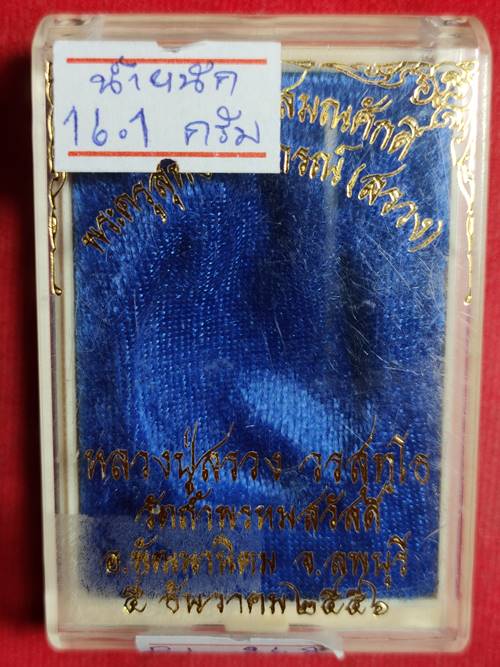 น้ำหนัก
16.1 กรัม
สมณศักดิ์
(สรวง)
หลวงปู่สรวง วรสุทฺโธ
วัดถ้ำพรหมสวัสดิ์
อ.พัฒนานิคม จ.ลพบุรี
๕ ธันวาคม ๒๕๕๖